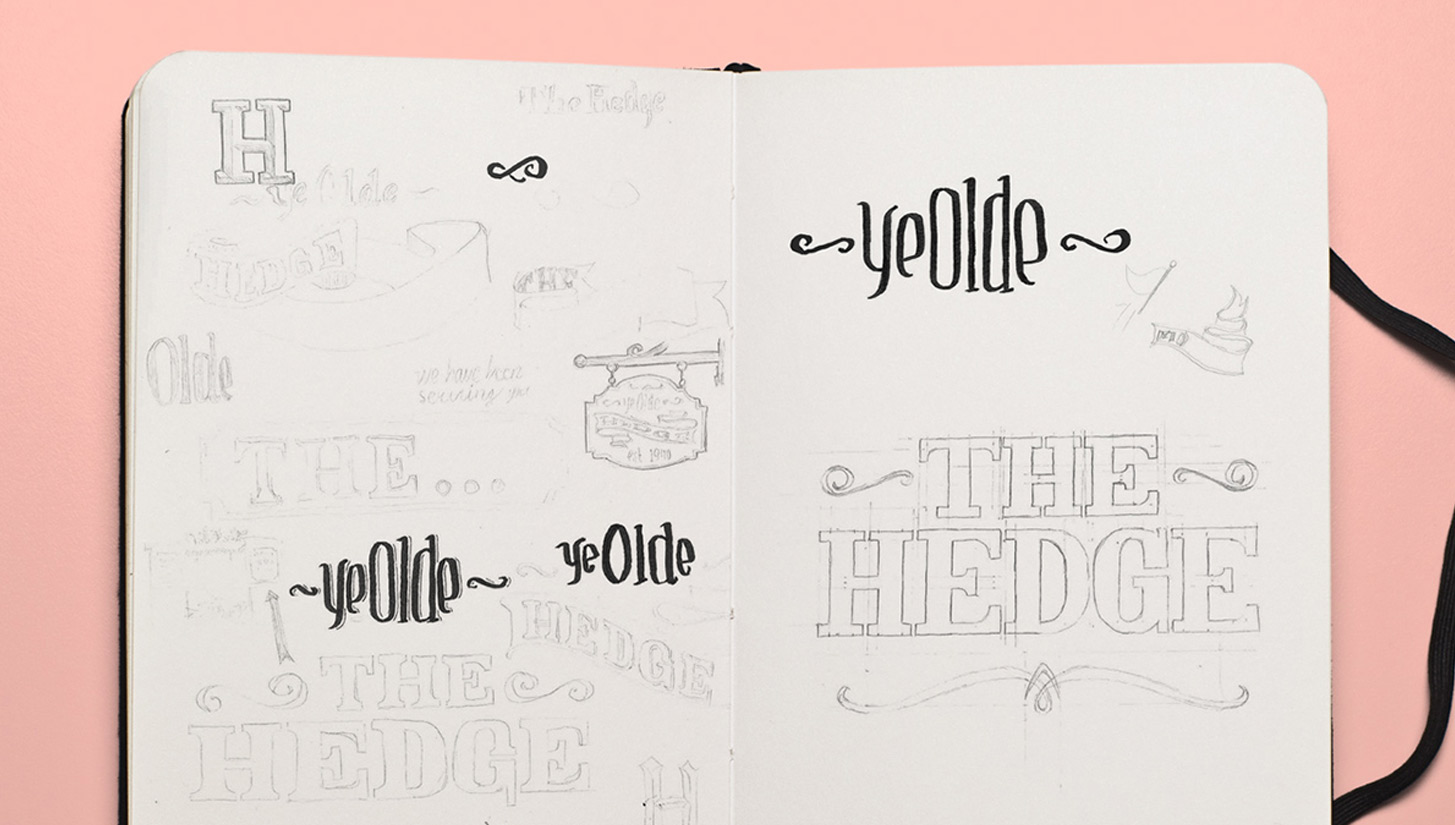 H
The Hedge
ye Olde
HEDGE
THE
Olde
we have been
serving you
ye Olde
HEDGE
est. 1970
THE...
yeOlde
yeOlde
HEDGE
THE
HEDGE
H
yeOlde
THE
HEDGE